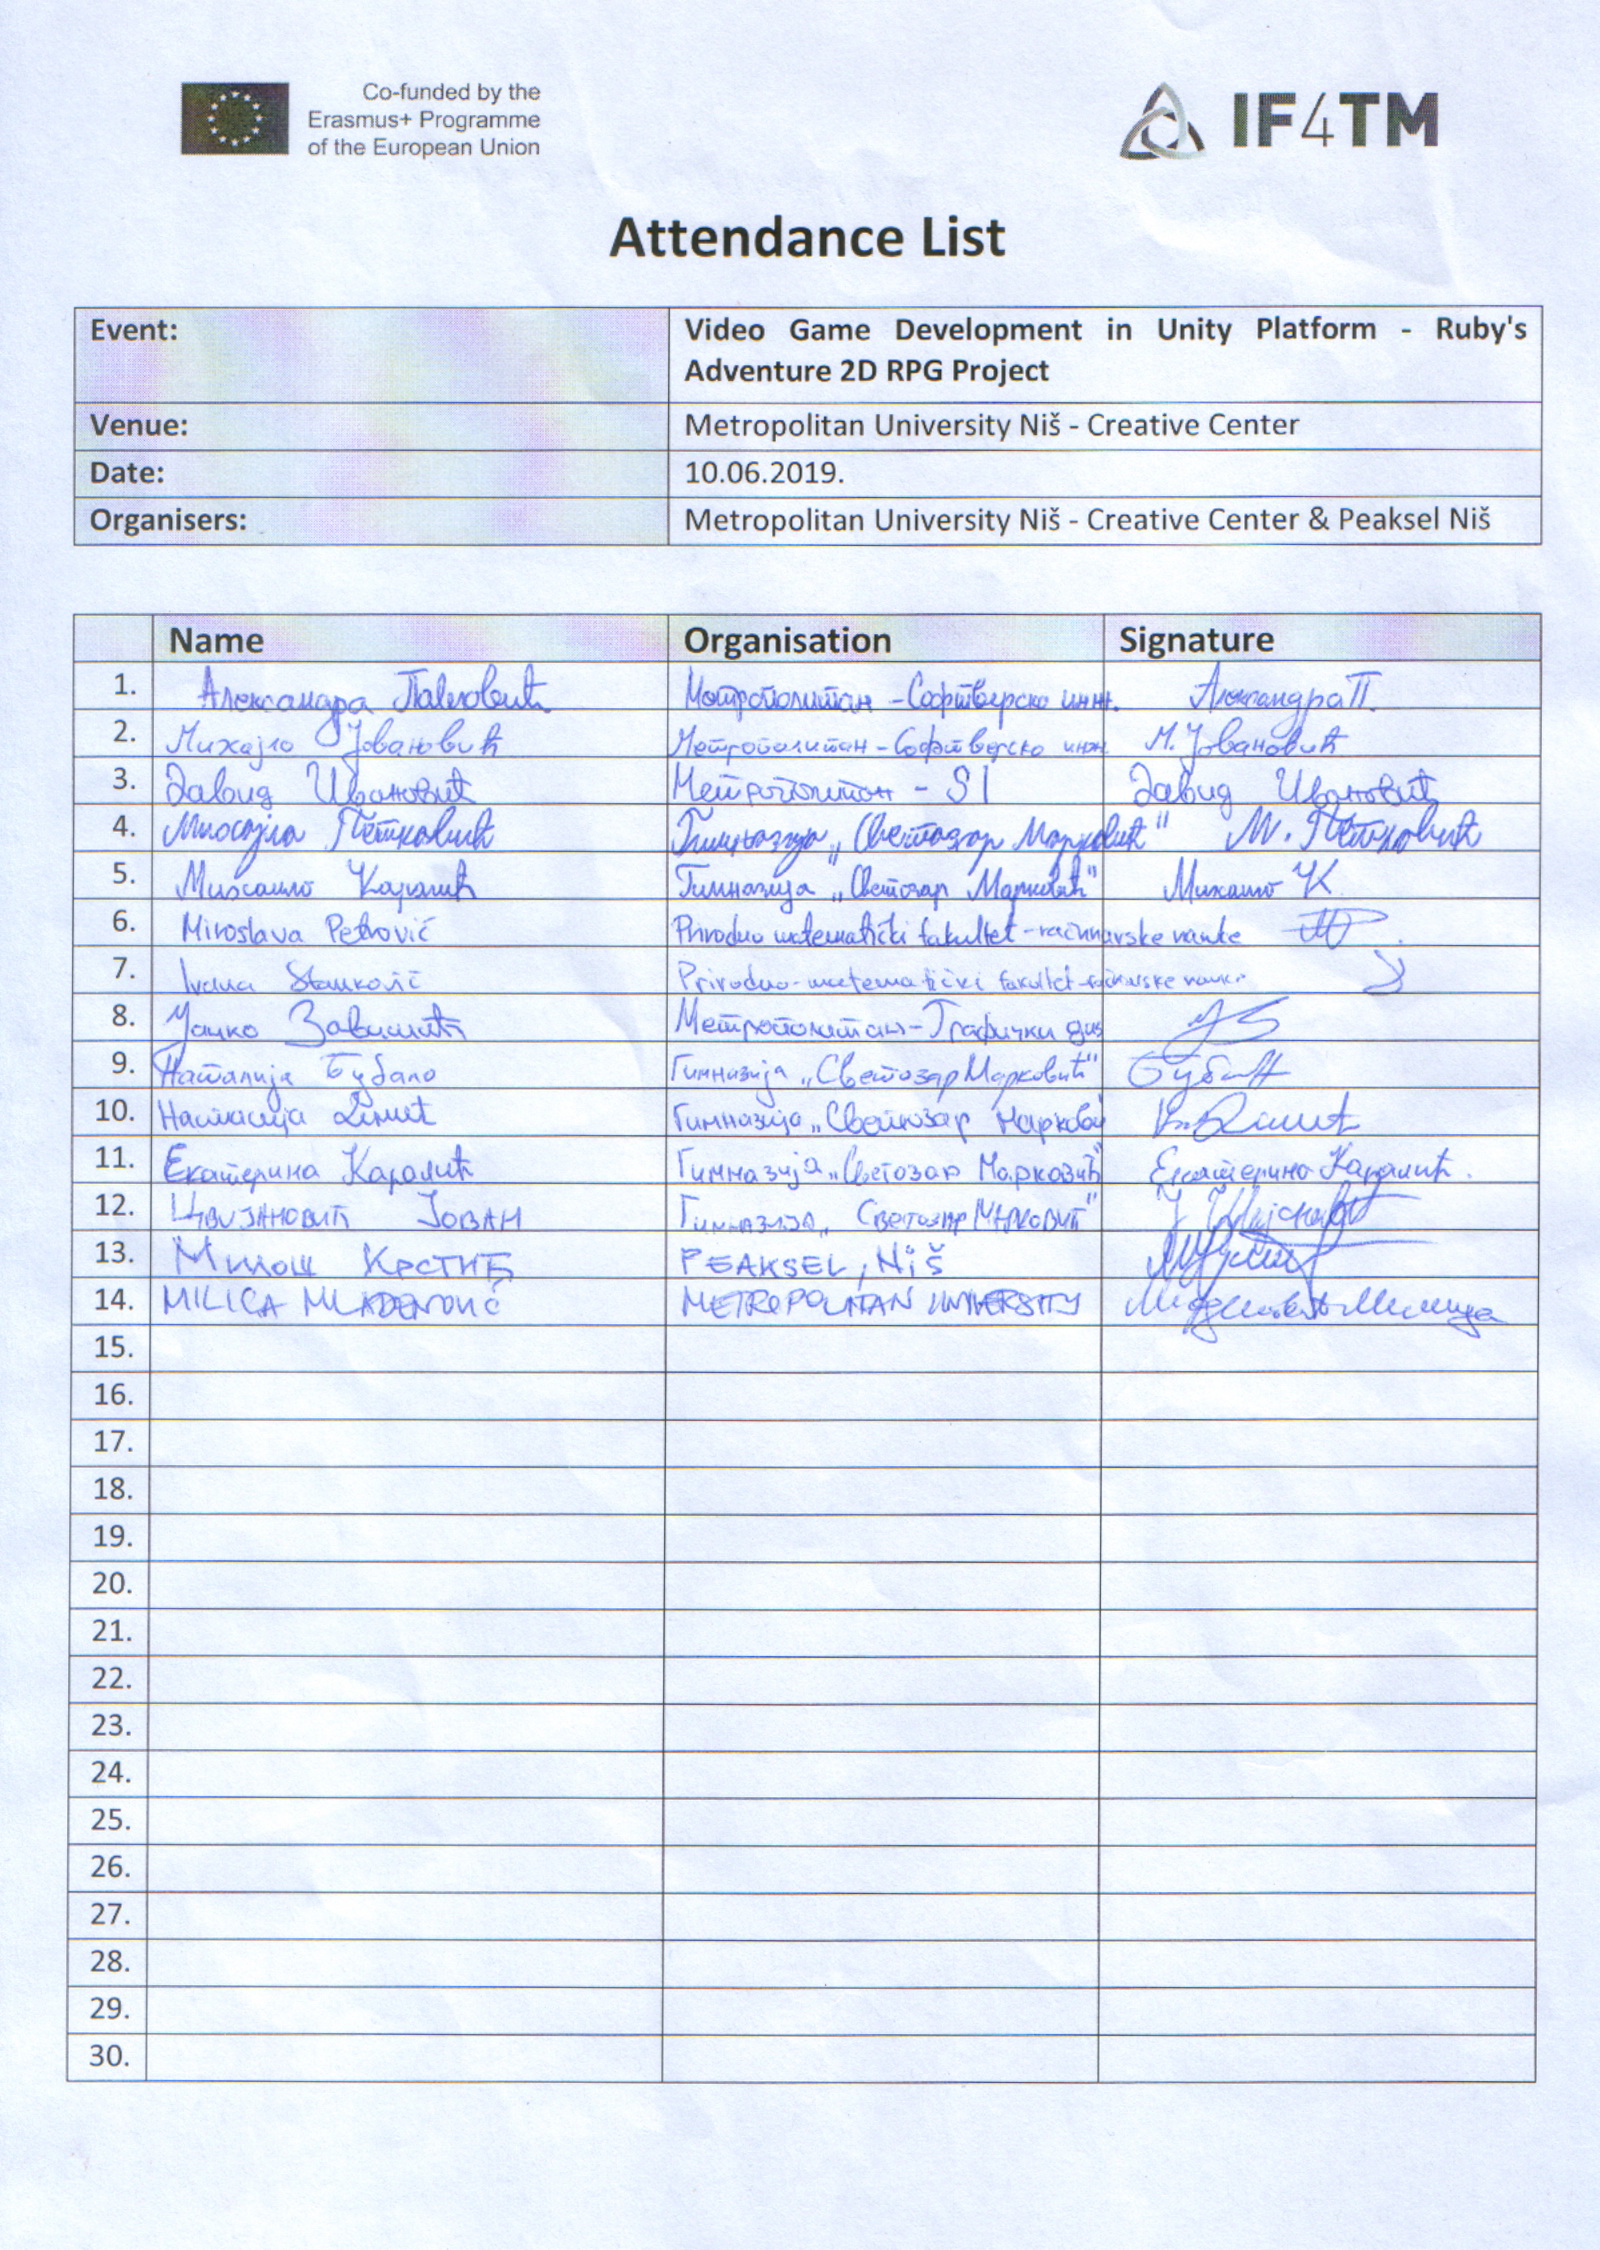 Co-funded by the
Erasmus+ Programme
of the European Union
IF4TM
Attendance List
Event: Video Game Development in Unity Platform - Ruby's
Adventure 2D RPG Project
Venue: Metropolitan University Niš - Creative Center
Date: 10.06.2019.
Organisers: Metropolitan University Niš - Creative Center & Peaksel Niš
Name Organisation Signature
1. Александра Павловић Метрополитан - Софтверско инж. Александра П.
2. Михајло Јовановић Метрополитан - Софтверско инж М. Јовановић
3. Давид Ивановић Метрополитан - SI Давид Ивановић
4. Петковић Гимназија „Светозар Марковић" М. Петковић
5. Михаило Каралић Гимназија „Светозар Марковић" Михаило К
6. Miroslava Petrović Prirodno matematički fakultet - računarske nauke
7. Ivana Stanković Prirodno-matematički fakultet-računarske nauke
8. Метрополитан - Графички диз
9. Наталија Бубало Гимназија „Светозар Марковић"
10. Настасија Гимназија „Светозар Марковић
11. Екатерина Каралић Гимназија „Светозар Марковић Екатерина Каралић.
12. Цвијановић Јован Гимназија „Светозар Марковић"
13. Милош Крстић PEAKSEL, Niš
14. MILICA MLADENOVIĆ METROPOLITAN UNIVERSITY Младеновић Милица
15.
16.
17.
18.
19.
20.
21.
22.
23.
24.
25.
26.
27.
28.
29.
30.